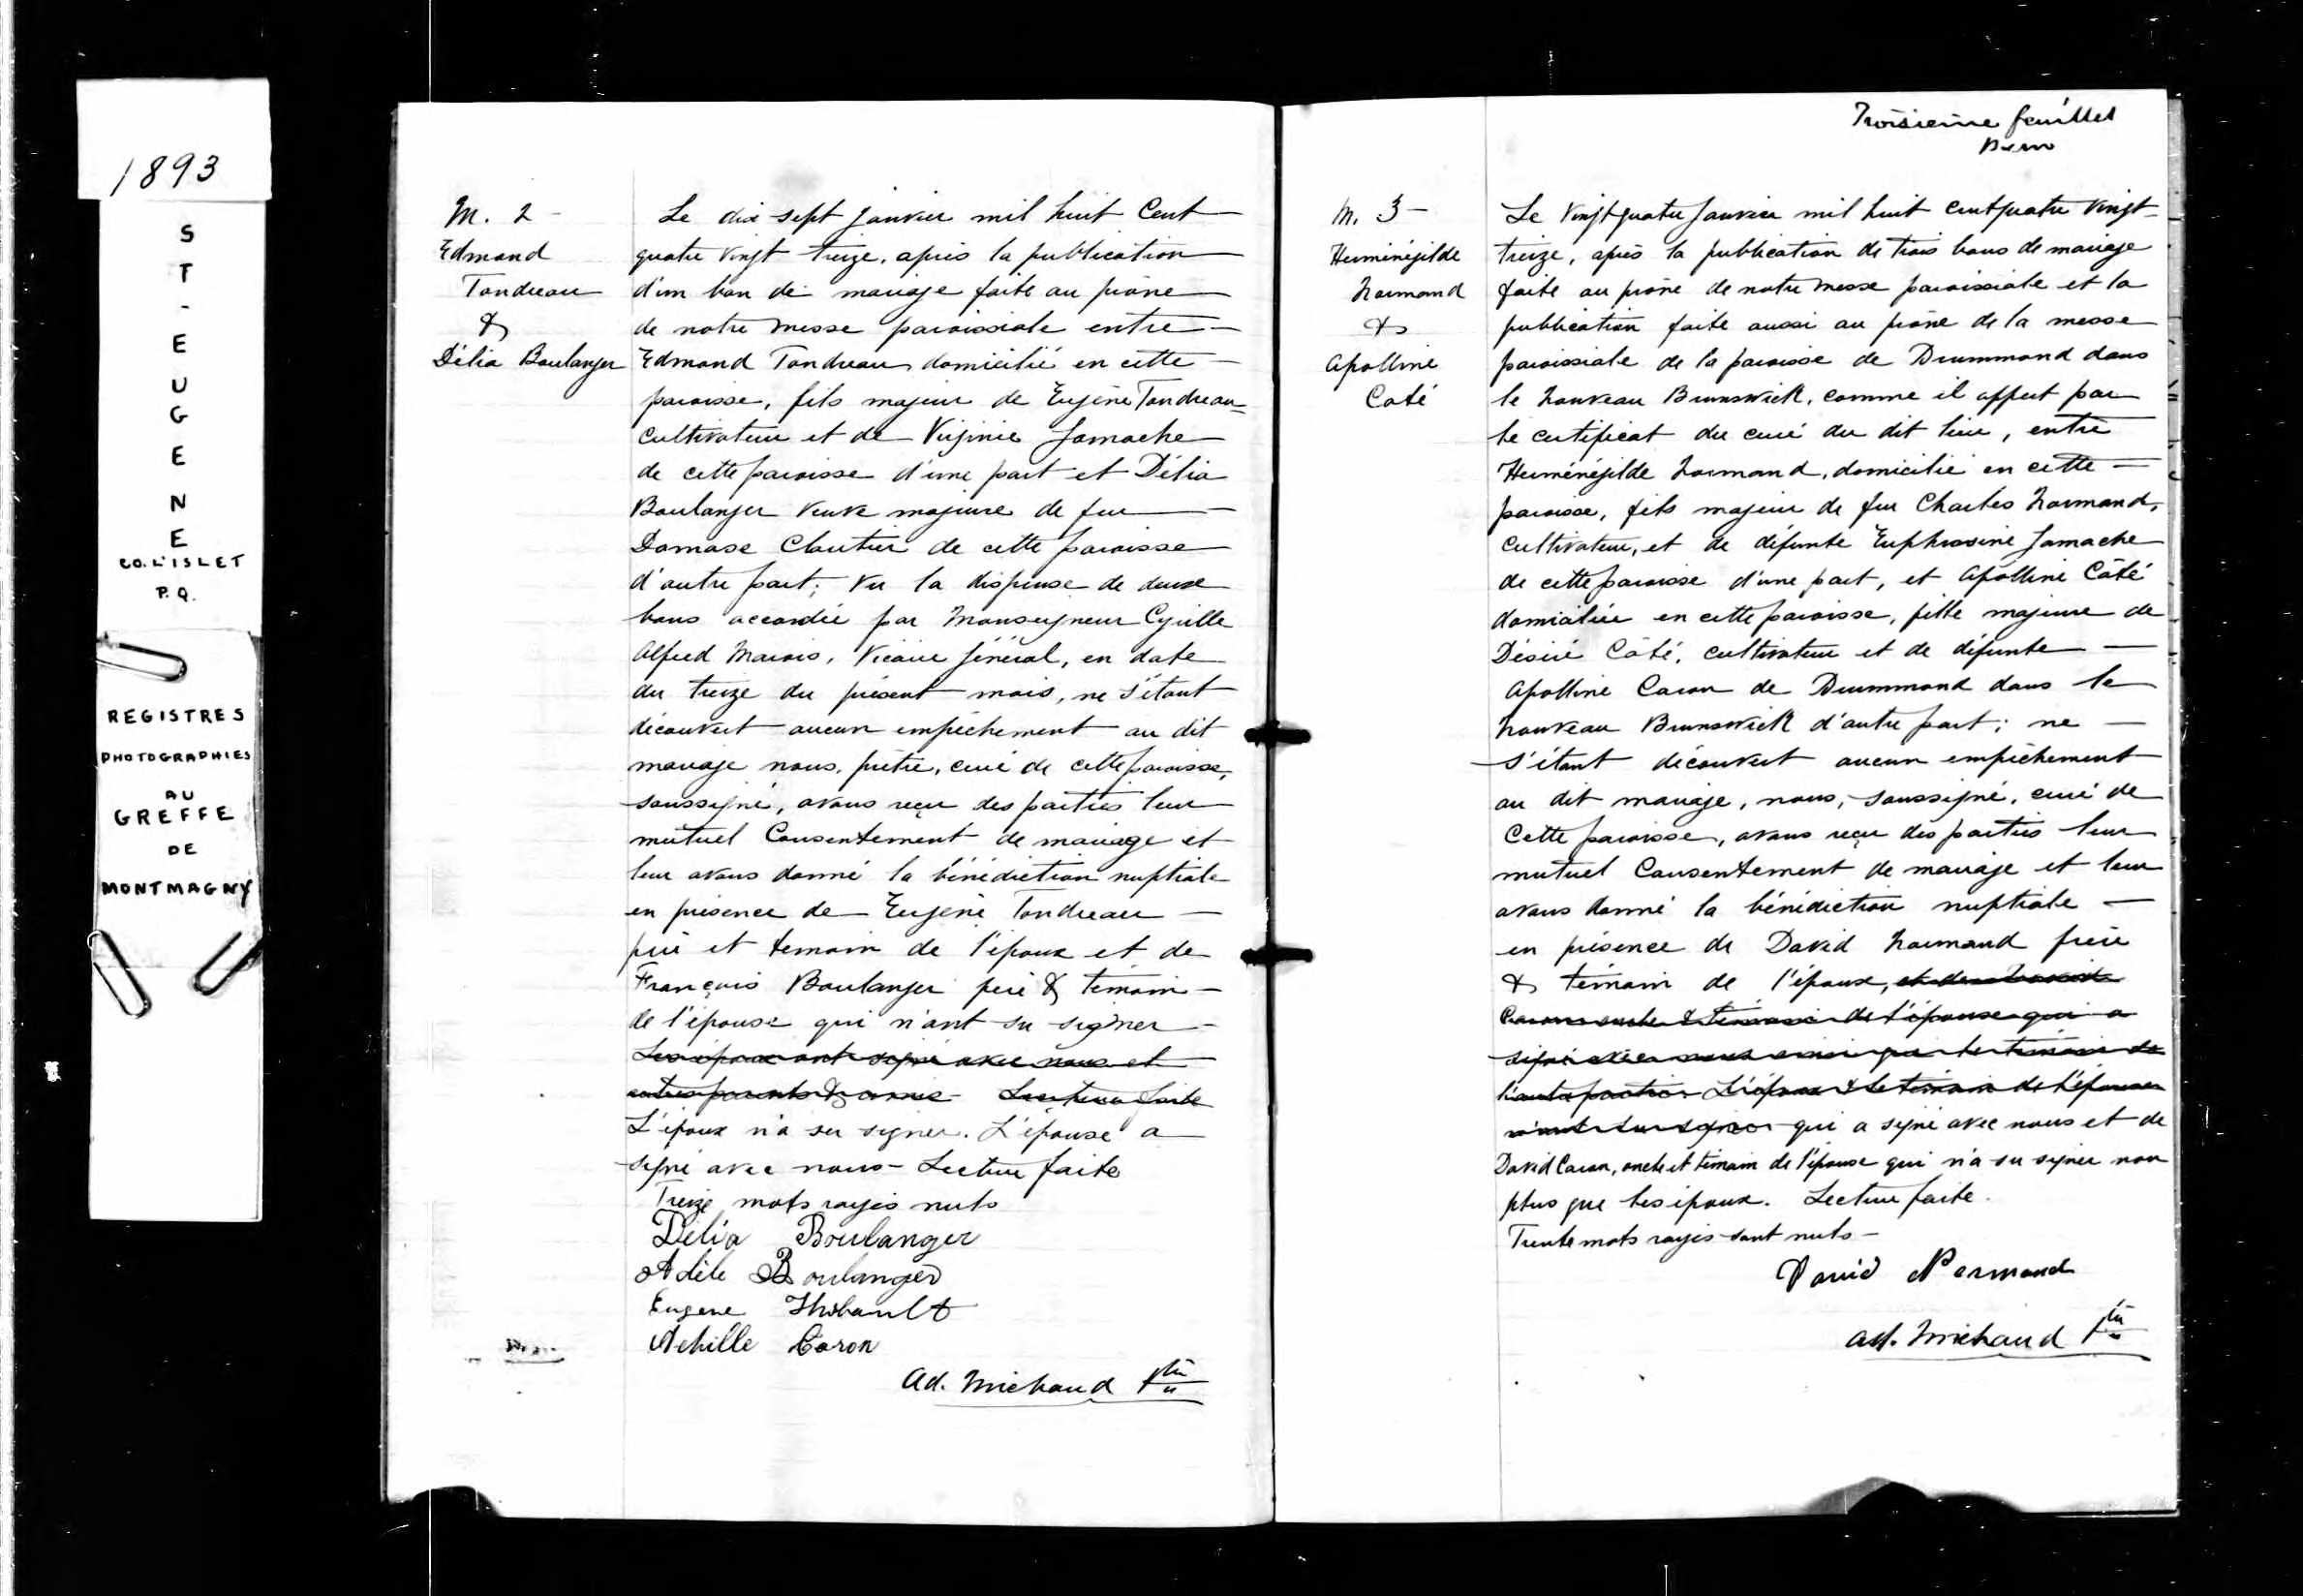 1893
ST-EUGENE
CO. L'ISLET
P.Q.
REGISTRES
PHOTOGRAPHIES
AU
GREFFE
DE
MONTMAGNY
M. 2 -
Edmond
Tondreau
&
Délia Boulanger
Le dix-sept janvier mil huit Cent
quatre vingt treize, après la publication
d'un ban de mariage faite au prône
de notre messe paroissiale entre
Edmond Tondreau domicilié en cette
paroisse, fils majeur de Eugène Tondreau
cultivateur et de Virginie Jamache
de cette paroisse d'une part et Délia
Boulanger veuve majeure de feu
Damase Cloutier de cette paroisse
d'autre part; vu la dispense de deux
bans accordée par Monseigneur Cyrille
Alfred Marois, Vicaire général, en date
du treize du présent mois, ne s'étant
découvert aucun empêchement au dit
mariage nous, prêtre, curé de cette paroisse,
soussigné, avons reçu des parties leur
mutuel Consentement de mariage et
leur avons donné la bénédiction nuptiale
en présence de Eugène Tondreau
père et temoin de l'époux et de
François Boulanger père & témoin
de l'épouse qui n'ont su signer
Les époux ont signé avec nous et
autres parents & amis - Lecture faite
L'époux n'a su signer. L'épouse a
signé avec nous - Lecture faite
Treize mots rayés nuls
Délia Boulanger
Adèle Boulanger
Eugene Thibault
Achille Caron
Ad. Michaud Ptre
Troisième feuillet
M. 3 -
Herménégilde
Normand
&
Apolline
Coté
Le vingt quatre Janvier mil huit cent quatre vingt
treize, après la publication de trois bans de mariage
faite au prône de notre messe paroissiale et la
publication faite aussi au prône de la messe
paroissiale de la paroisse de Drummond dans
le Nouveau Brunswick, comme il appert par
le certificat du curé du dit lieu, entre
Herménégilde Normand, domicilié en cette
paroisse, fils majeur de feu Charles Normand,
cultivateur, et de défunte Euphrosine Jamache
de cette paroisse d'une part, et Apolline Côté
domiciliée en cette paroisse, fille majeure de
Désiré Côté, cultivateur et de défunte
Apolline Caron de Drummond dans le
Nouveau Brunswick d'autre part; ne
s'étant découvert aucun empêchement
au dit mariage, nous, soussigné, curé de
Cette paroisse, avons reçu des parties leur
mutuel Consentement de mariage et leur
avons donné la bénédiction nuptiale
en présence de David Normand frère
& témoin de l'époux, et de David
Caron oncle & témoin de l'épouse qui a
signé avec nous ainsi que le témoin de
L'époux & le témoin de l'épouse
n'ont su signer qui a signé avec nous et de
David Caron, oncle et témoin de l'épouse qui n'a su signer non
plus que les époux. Lecture faite.
Trente mots rayés sont nuls -
David Normand
Ad. Michaud Ptre